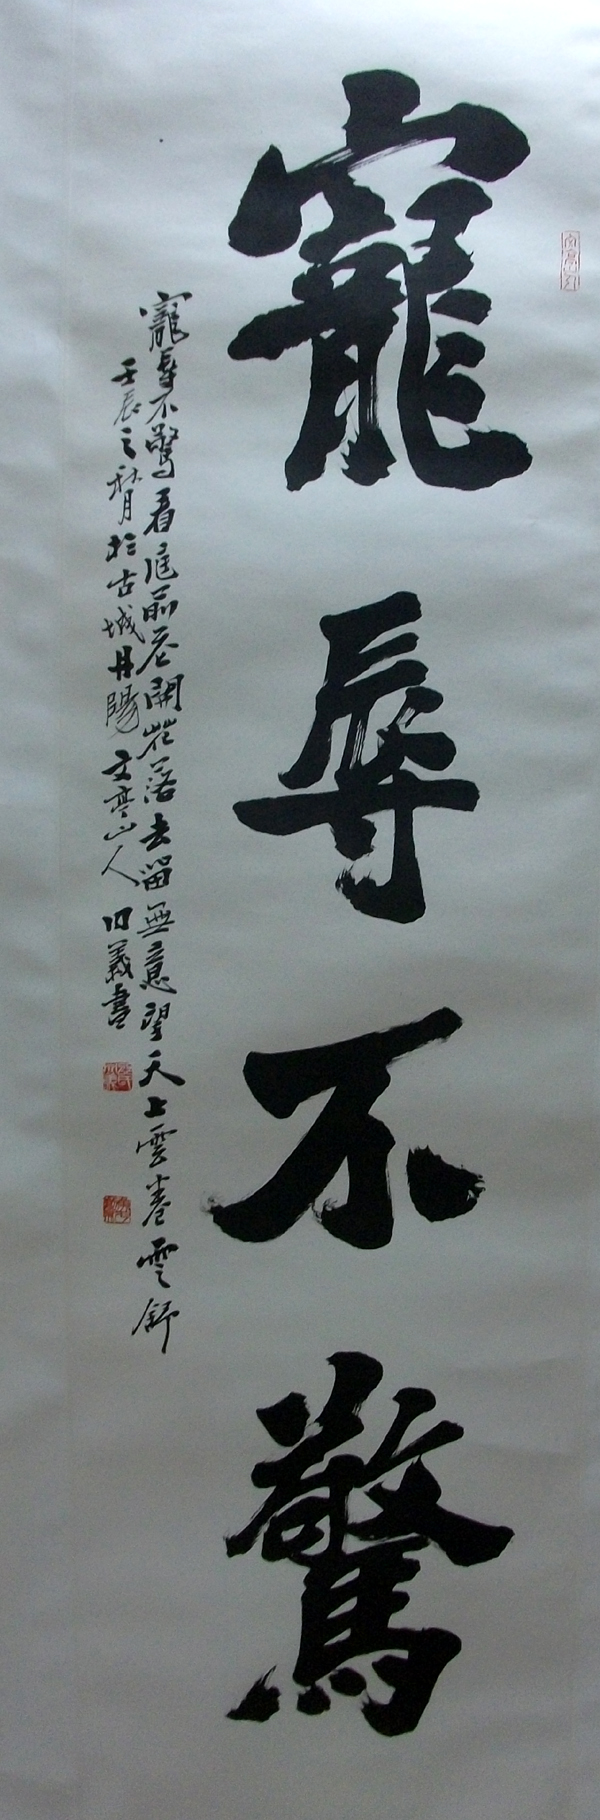 寵辱不驚
寵辱不驚看庭前花開花落去留無意望天上雲卷雲舒
壬辰之秋月於古城丹陽文亭山人旧義書